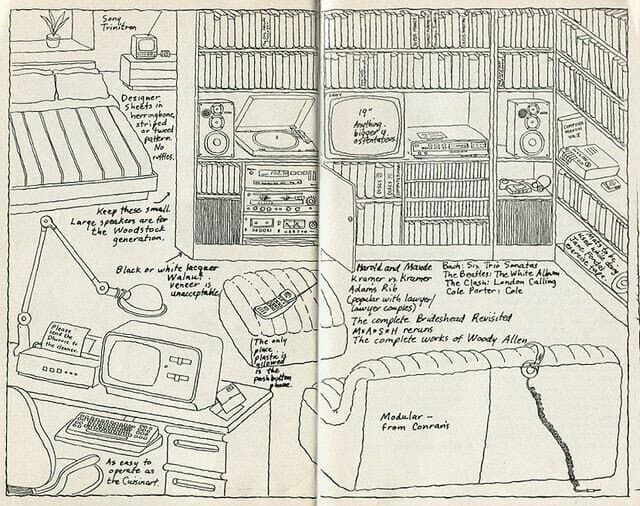 Sony
Trinitron
Designer
sheets in
herringbone,
striped
or tweed
pattern.
No
ruffles.
Keep these small.
Large speakers are for
the Woodstock
generation.
Black or white lacquer.
Walnut...
veneer is
unacceptable
19"
Anything
bigger is
ostentatious.
COMPUTER
MANUAL
VOL. I
Mats to be
used during
Jane Fonda
exercise tape.
Harold and Maude
Kramer vs Kramer
Adams Rib
(popular with lawyer/
lawyer couples)
The complete Brideshead Revisited
M*A*S*H reruns
The complete works of Woody Allen
Bach: Six Trio Sonatas
The Beatles: The White Album
The Clash: London Calling
Cole Porter: Cole
The only
place...
plastic is
allowed
is the
pushbutton
phone.
Please
send the
Dhurrie to
the cleaner.
As easy to
operate as
the Cuisinart.
Modular –
from Conran's